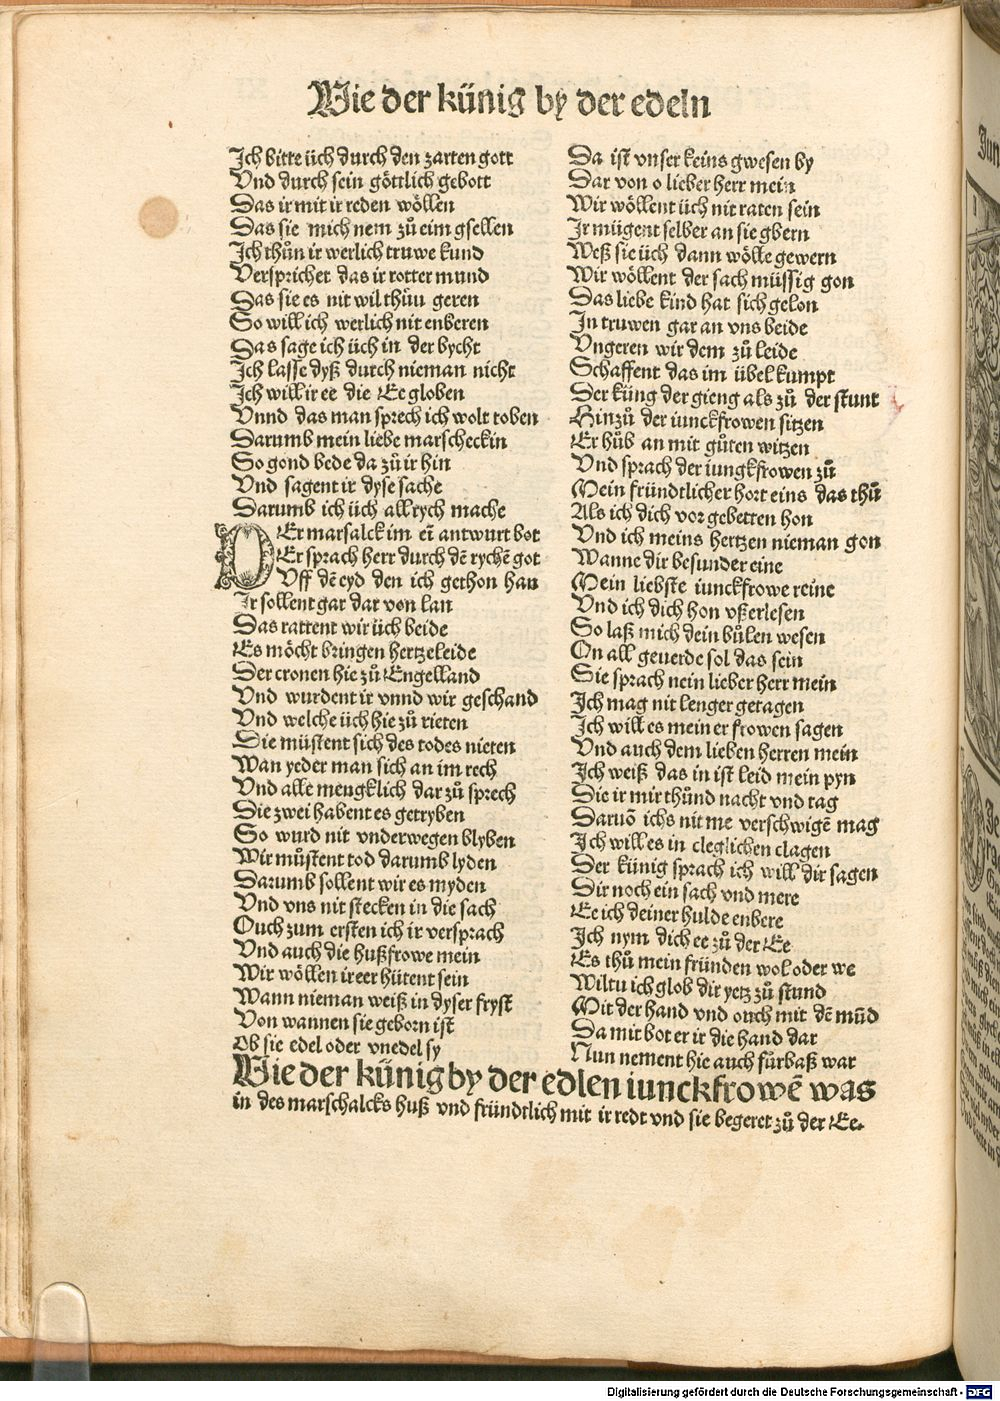 Wie der künig by der edeln
Ich bitte üch durch den zarten gott
Vnd durch sein göttlich gebott
Das ir mit ir reden wöllen
Das sie mich nem zů eim gsellen
Ich thůn ir werlich truwe kund
Versprichet das ir rotter mund
Das sie es nit wil thůn geren
So will ich werlich nit enberen
Das sage ich üch in der bycht
Ich lasse dyß durch nieman nicht
Ich will ir ee die Ee globen
Vnnd das man sprech ich wolt toben
Darumb mein liebe marscheckin
So gond bede da zů ir hin
Vnd sagent ir dyse sache
Darumb ich üch all rych mache
DEr marsalck im eī antwurt bot
Er sprach herr durch dē rychē got
Vff dē eyd den ich gethon han
Ir sollent gar dar von lan
Das rattent wir üch beide
Es möcht bringen hertzeleide
Der cronen hie zů Engelland
Vnd wurdent ir vnnd wir geschand
Vnd welche üch hie zů rieten
Die müstent sich des todes nieten
Wan yeder man sich an im rech
Vnd alle mengklich dar zů sprech
Die zwei habent es getryben
So wurd nit vnderwegen blyben
Wir můstent tod darumb lyden
Darumb sollent wir es myden
Vnd vns nit stecken in die sach
Ouch zum ersten ich ir versprach
Vnd auch die hußfrowe mein
Wir wöllen ir eer hütent sein
Wann nieman weiß in dyser fryst
Von wannen sie geborn ist
Ob sie edel oder vnedel sy
Da ist vnser keins gwesen by
Dar von o lieber herr mein
Wir wöllent üch nit raten sein
Ir mügent selber an sie gbern
Weß sie üch dann wölle gewern
Wir wöllent der sach müssig gon
Das liebe kind hat sich gelon
In truwen gar an vns beide
Vngeren wir dem zů leide
Schaffent das im übel kumpt
Der küng der gieng als zů der stunt
Hinzů der iunckfrowen sitzen
Er hůb an mit gůten witzen
Vnd sprach der iungkfrowen zů
Mein fründtlicher hort eins das thů
Als ich dich vor gebetten hon
Vnd ich meins hertzen nieman gon
Wanne dir besunder eine
Mein liebste iunckfrowe reine
Vnd ich dich hon vßerlesen
So laß mich dein bůlen wesen
On all geuerde sol das sein
Sie sprach nein lieber herr mein
Ich mag nit lenger getagen
Ich will es mein er frowen sagen
Vnd auch dem lieben herren mein
Ich weiß das in ist leid mein pyn
Die ir mir thůnd nacht vnd tag
Daruō ichs nit me verschwigē mag
Ich will es in cleglichen clagen
Der künig sprach ich will dir sagen
Dir noch ein sach vnd mere
Ee ich deiner hulde enbere
Ich nym dich ee zů der Ee
Es thů mein fründen wol oder we
Wiltu ich glob dir yetz zů stund
Mit der hand vnd ouch mit dē mūd
Da mit bot er ir die hand dar
Nun nement hie auch fürbaß war
Wie der künig by der edlen iunckfrowē was
in des marschalcks huß vnd fründtlich mit ir redt vnd sie begeret zů der Ee.
Digitalisierung gefördert durch die Deutsche Forschungsgemeinschaft - DFG